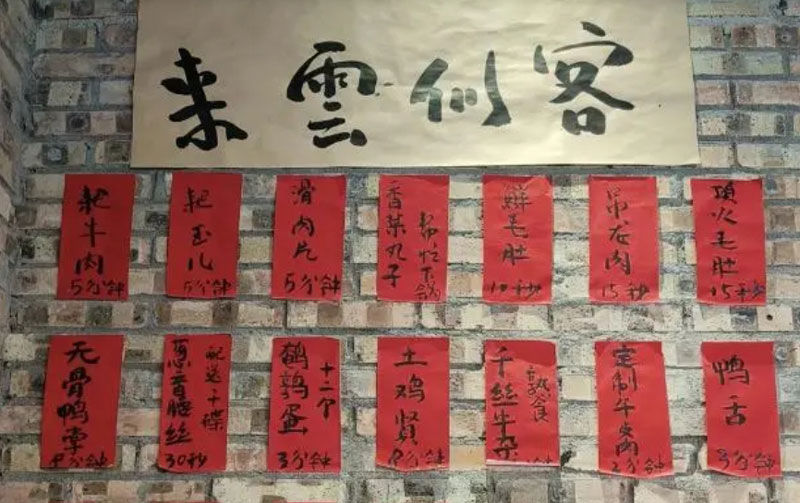 客似雲来
耙牛肉
5分钟
耙玉儿
5分钟
滑肉片
5分钟
香菜丸子
帮忙下锅
鲜毛肚
10秒
吊龙肉
15秒
顶火毛肚
15秒
无骨鸭掌
8分钟
葱香腰丝
配送十碟
30秒
鹌鹑蛋
十二个
3分钟
土鸡贤
8分钟
千丝牛杂
熟食
分钟
定制牛肉
2分钟
鸭舌
分钟